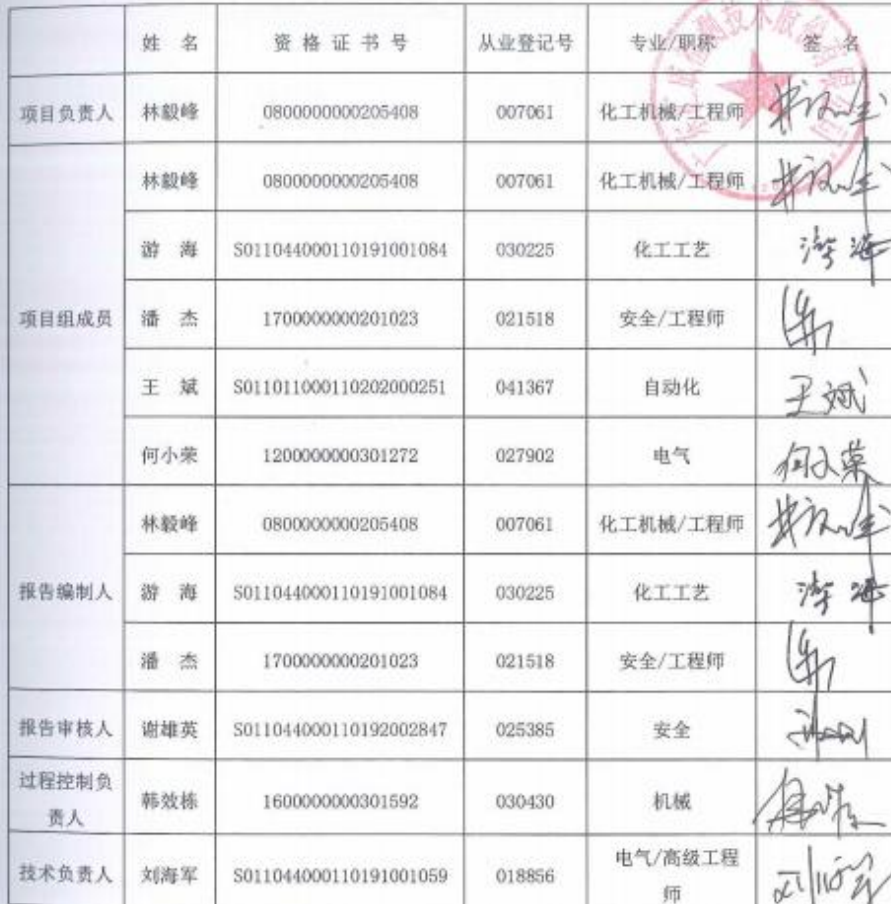 姓 名 资 格 证 书 号 从业登记号 专业/职称 签 名
项目负责人 林毅峰 0800000000205408 007061 化工机械/工程师
项目组成员 林毅峰 0800000000205408 007061 化工机械/工程师
游 海 S011044000110191001084 030225 化工工艺 游海
潘 杰 1700000000201023 021518 安全/工程师
王 斌 S011011000110202000251 041367 自动化 王斌
何小荣 1200000000301272 027902 电气 何小荣
报告编制人 林毅峰 0800000000205408 007061 化工机械/工程师
游 海 S011044000110191001084 030225 化工工艺 游海
潘 杰 1700000000201023 021518 安全/工程师
报告审核人 谢雄英 S011044000110192002847 025385 安全
过程控制负
责人 韩效栋 1600000000301592 030430 机械
技术负责人 刘海军 S011044000110191001059 018856 电气/高级工程
师